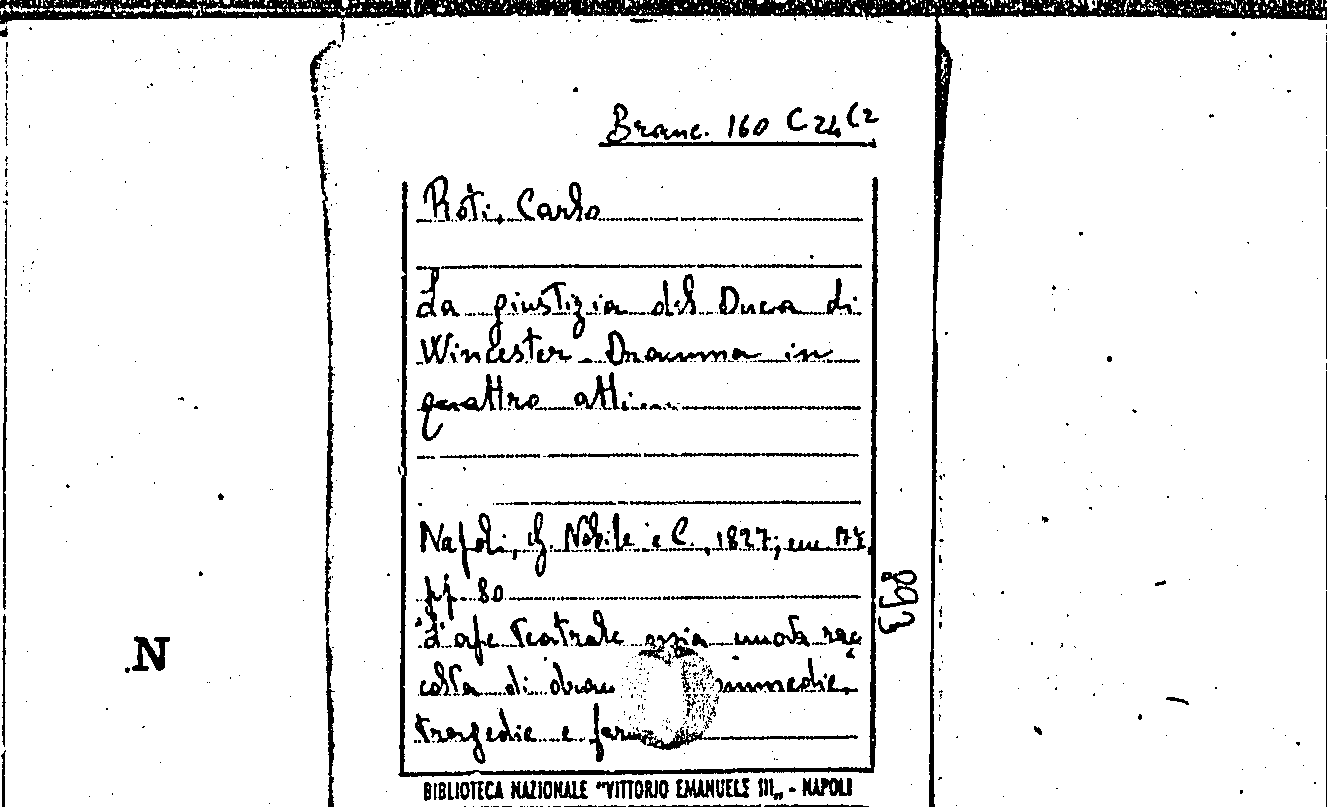 Branc. 160 C 24 (2
Roti, Carlo
La giustizia del Duca di
Wincester. Dramma in
quattro atti....
Napoli, G. Nobile e C., 1827; in
pp. 80
L'ape teatrale ossia nuova rac
colta di
tragedie e
893
N
BIBLIOTECA NAZIONALE "VITTORIO EMANUELE III„ - NAPOLI